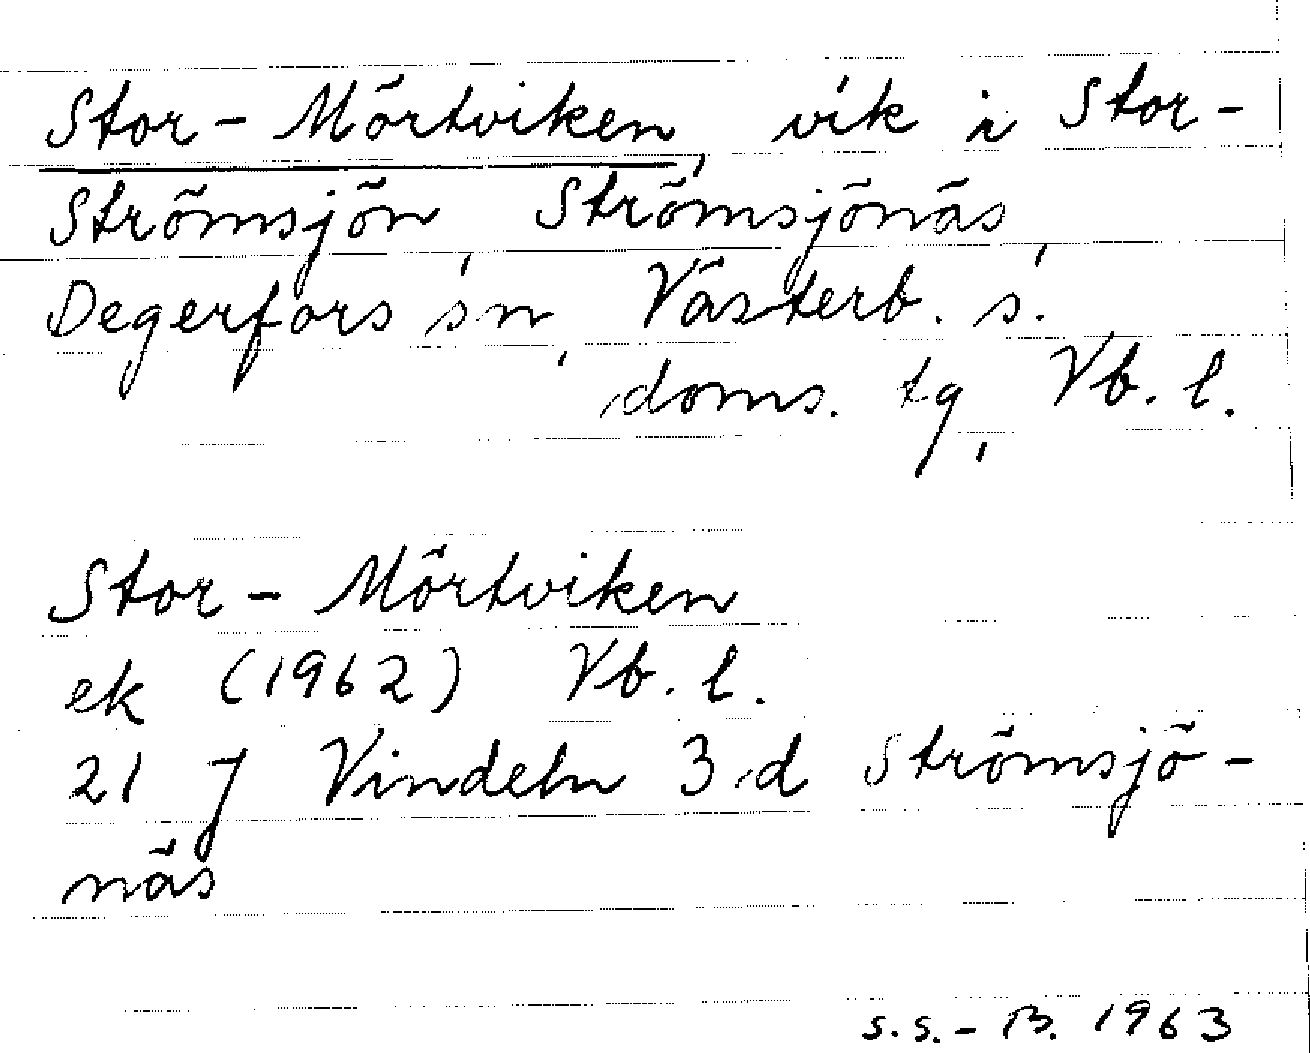 Stor-Mörtviken, vik i Stor-
Strömsjön, Strömsjönäs,
Degerfors sn, Västerb. s.
doms. tg, Vb. l.
Stor-Mörtviken
ek (1962) Vb. l.
21 J Vindeln 3 d Strömsjö-
näs
s.s.-B. 1963